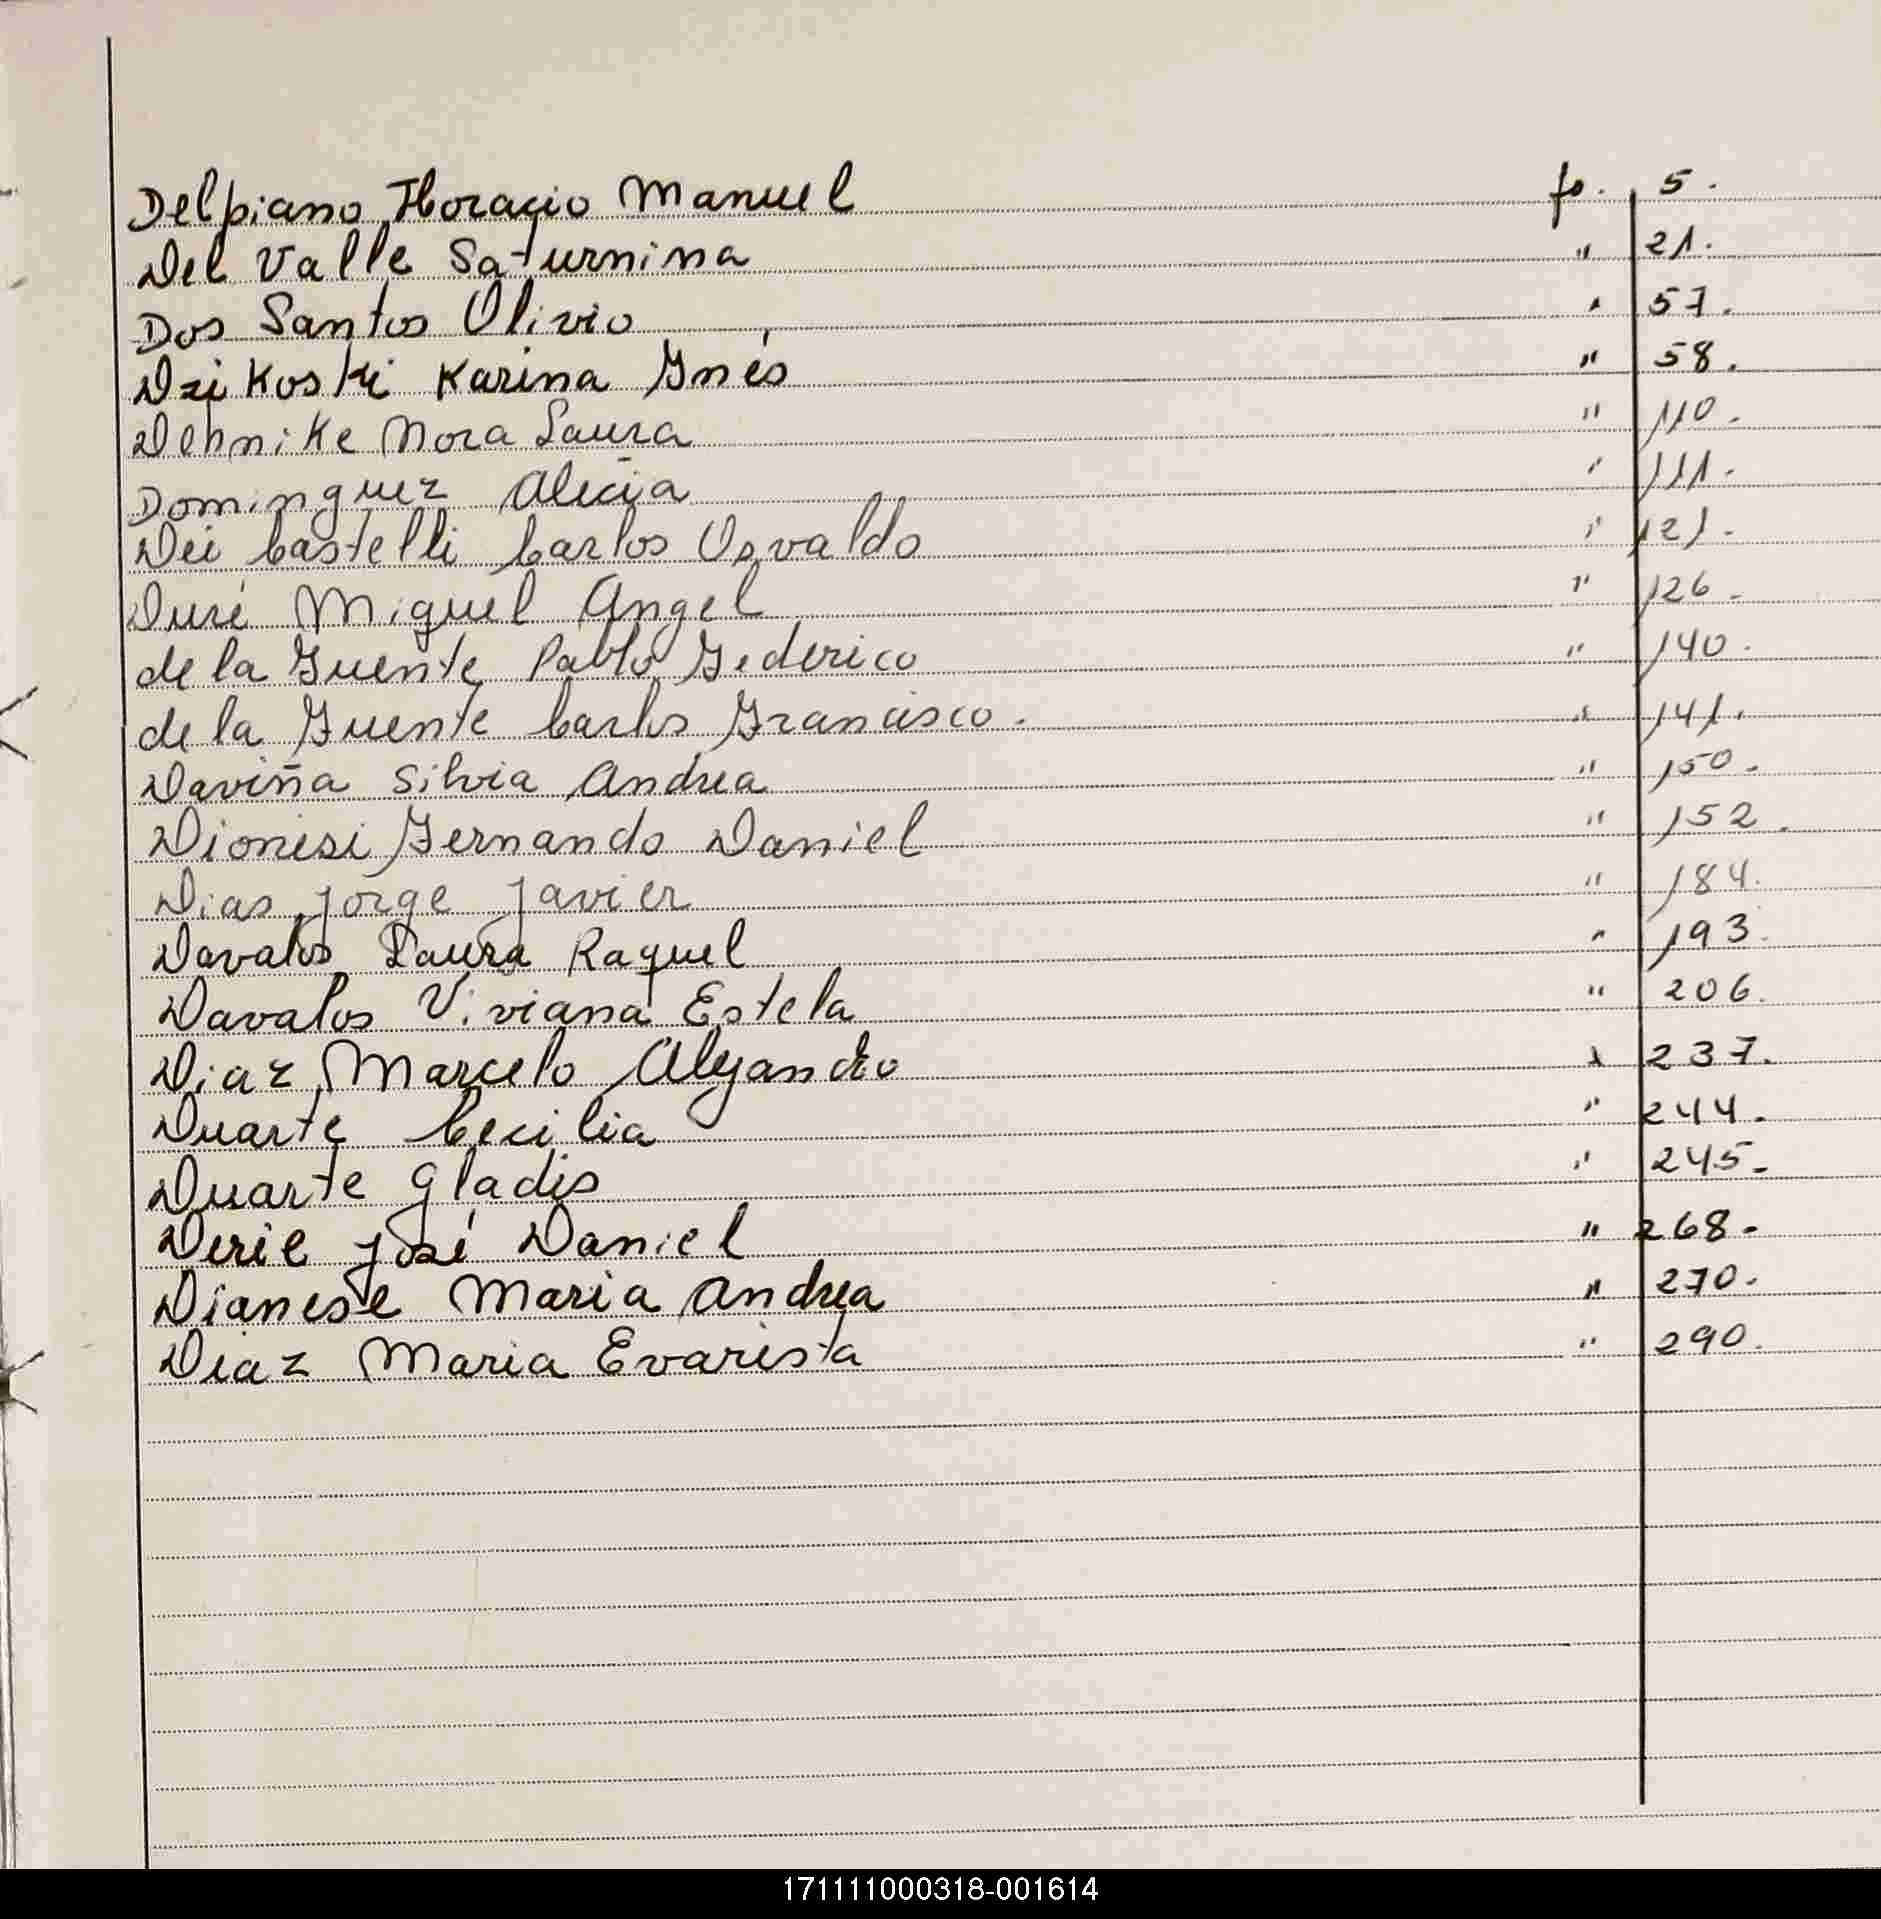 Delpiano Horacio Manuel fo. 5.
Del Valle Saturnina " 21.
Dos Santos Olivio " 57.
Dzikoski Karina Inés " 58.
Dehnike Nora Laura " 110.
Dominguez Alicia " 111.
Dei Castelli Carlos Osvaldo " 121.
Duré Miguel Angel " 126.
de la Fuente Pablo Federico " 140.
de la Fuente Carlos Francisco. " 141.
Daviña Silvia Andrea " 150.
Dionisi Fernando Daniel " 152.
Dias Jorge Javier " 184.
Davalos Laura Raquel " 193.
Davalos Viviana Estela " 206.
Diaz Marcelo Alejandro " 237.
Duarte Cecilia " 244.
Duarte Gladis " 245.
Deril José Daniel " 268.
Dianese Maria Andrea " 270.
Diaz Maria Evarista " 290.
171111000318-001614